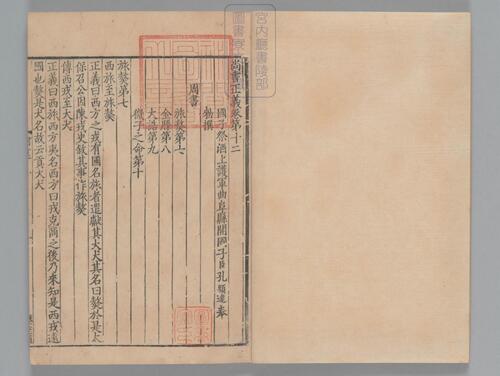 尚書正義卷第十二
國子祭酒上護軍曲阜縣開國子臣孔穎達奉
勑撰
周書
旅獒第七
金縢第八
大誥第九
微子之命第十
旅獒第七
西旅至旅獒
正義曰西方之戎有國名旅者遣獻其大犬其名曰獒於是太
保召公因陳戎史叙其事作旅獒
傳西戎至大犬
正義曰西旅西方夷名西方曰戎克商之後乃來知是西戎遠
國也獒是犬名故云貢大犬
宮内廳書陵部
圖書寮文庫